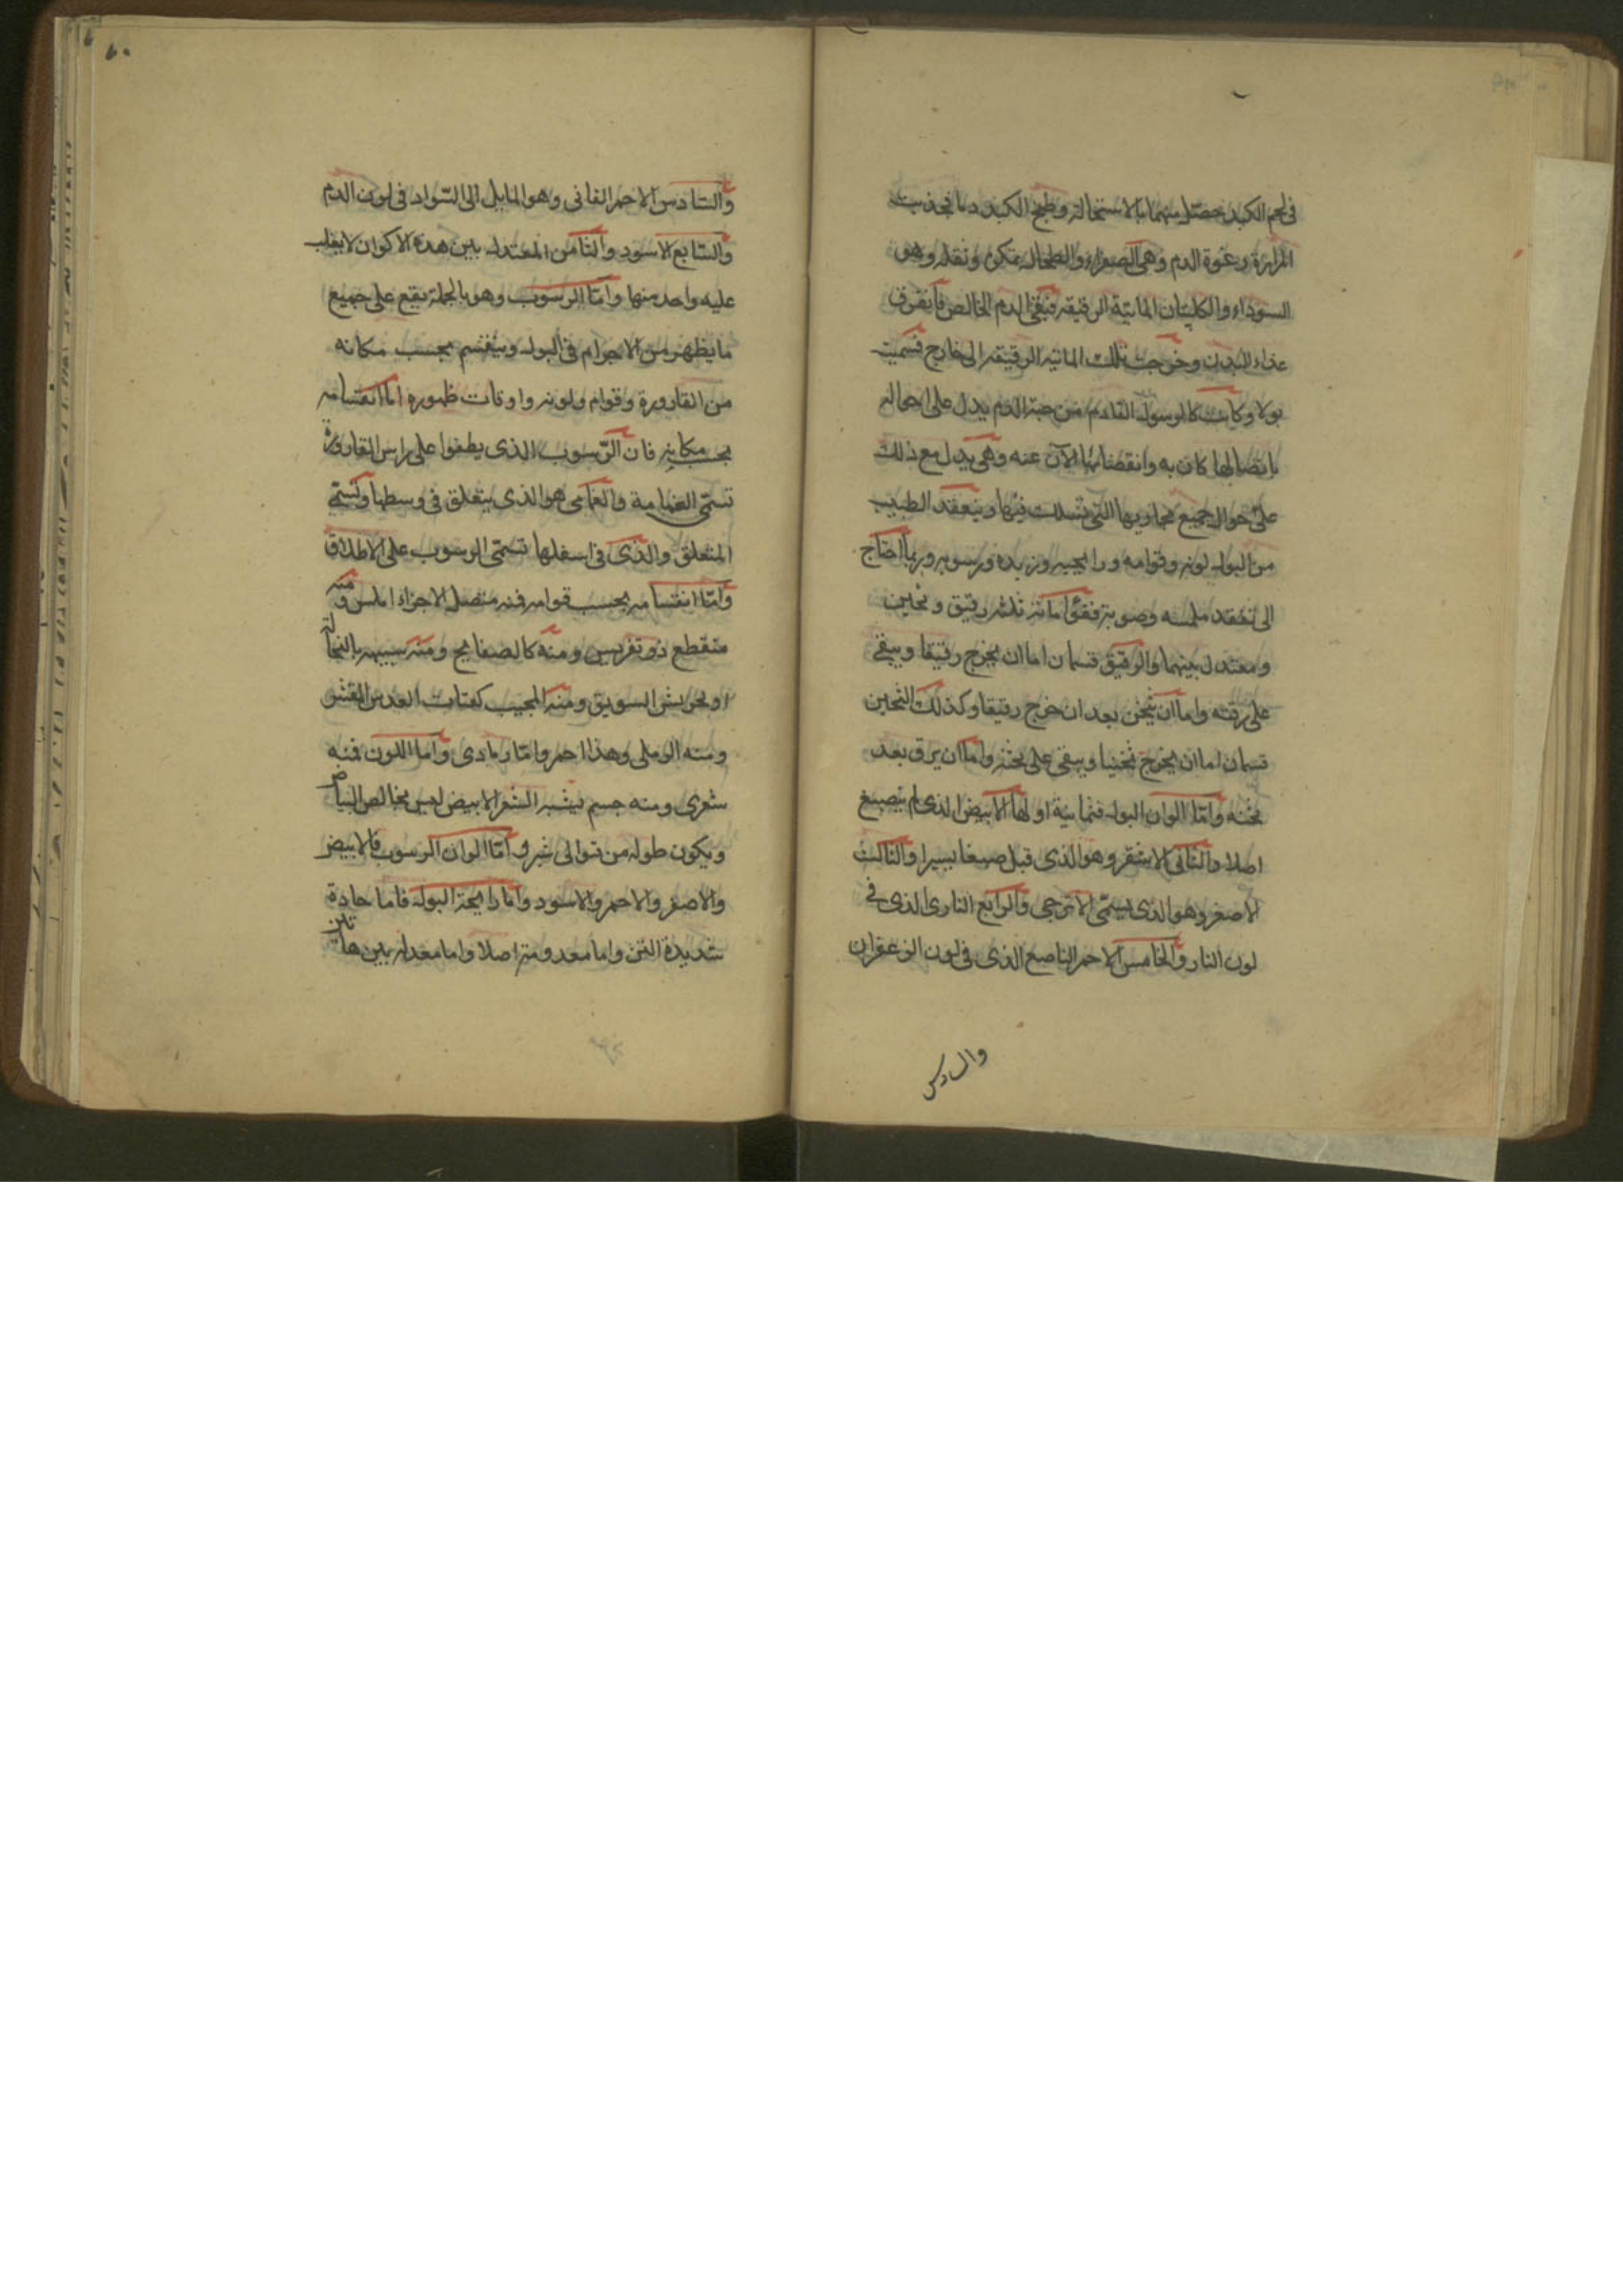 في لحم الكبد حصل منهما بالاستحالة وطبخ الكبد دما فجذبت
المرارة رغوة الدم وهي الصفراء والطحال عكره وثقله وهو
السوداء والكليتان المائية الرقيقة فبقي الدم الخالص فانفرق
غذاء للبدن وخرجت تلك المائية الرقيقة الى خارج فسميت
بولا وكانت كالرسول القادم من جهة الدم يدل على احواله
باتصالها كان به وانفصالها الآن عنه وهي يدل مع ذلك
على احوال جميع مجاريها التي تسلك فيها ويتفقد الطبيب
من البول لونه وقوامه ورايحته وزبده ورسوبه وربما احتاج
الى تفقد ملمسه وصوته فقواماته ثلثه رقيق وثخين
ومعتدل بينهما والرقيق قسمان اما ان يخرج رقيقا ويبقى
على رقته واما ان يثخن بعد ان خرج رقيقا وكذلك الثخين
قسمان اما ان يخرج ثخينا ويبقى على ثخنه واما ان يرق بعد
ثخنه واما الوان البول فثمانية اولها الابيض الذي لم ينصبغ
اصلا والثاني الاشقر وهو الذي قبل صبغا يسيرا والثالث
الاصفر وهو الذي يسمى الاترجي والرابع الناري الذي في
لون النار والخامس الاحمر الناصع الذي في لون الزعفران
والسادس
٦٠
والسادس الاحمر القاني وهو المايل الى السواد في لون الدم
والسابع الاسود والثامن المعتدل بين هذه الاكوان لا يغلب
عليه واحد منها واما الرسوب وهو بالجملة يقع على جميع
ما يظهر من الاجرام في البول وينقسم بحسب مكانه
من القارورة وقوامه ولونه واوقات ظهوره اما انقسامه
بحسب مكانه فان الرسوب الذي يطفوا على راس القارورة
تسمى الغمامية والغمامي هو الذي يتعلق في وسطها وتسمى
المتعلق والذي في اسفلها تسمى الرسوب على الاطلاق
واما انقسامه بحسب قوامه فمنه متصل الاجزاء املس ومنه
متقطع ذو تضريس ومنه كالصفايح ومنه شبيه بالنخالة
او بجريش السويق ومنه المجيب كفتات العدس المقشر
ومنه الرملي وهذا احمر واما رمادي واما اللون فمنه
شعرى ومنه جسم يشبه الشعر الابيض ليس بخالص البياض
ويكون طوله من توالى شبر واما الوان الرسوب فالابيض
والاصفر والاحمر والاسود واما رايحة البول فاما حادة
شديدة النتن واما معدومة اصلا واما معتدلة بين هاتين